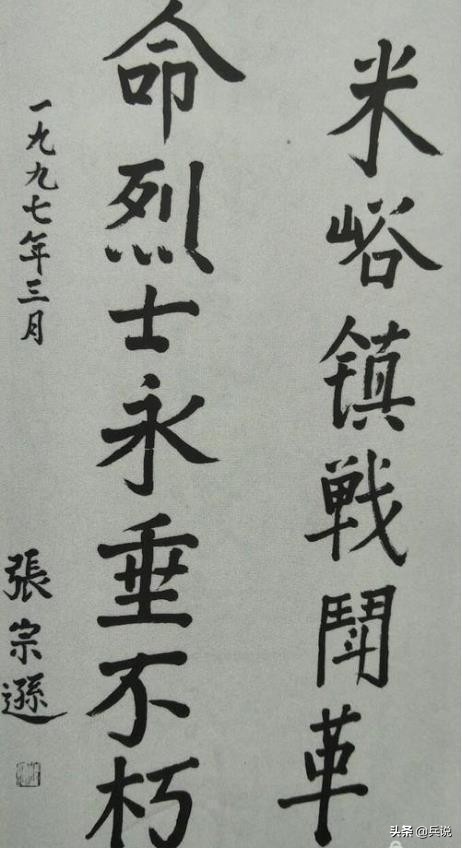 米峪镇戦鬪革
命烈士永垂不朽
一九九七年三月
張宗遜
头条 @兵说